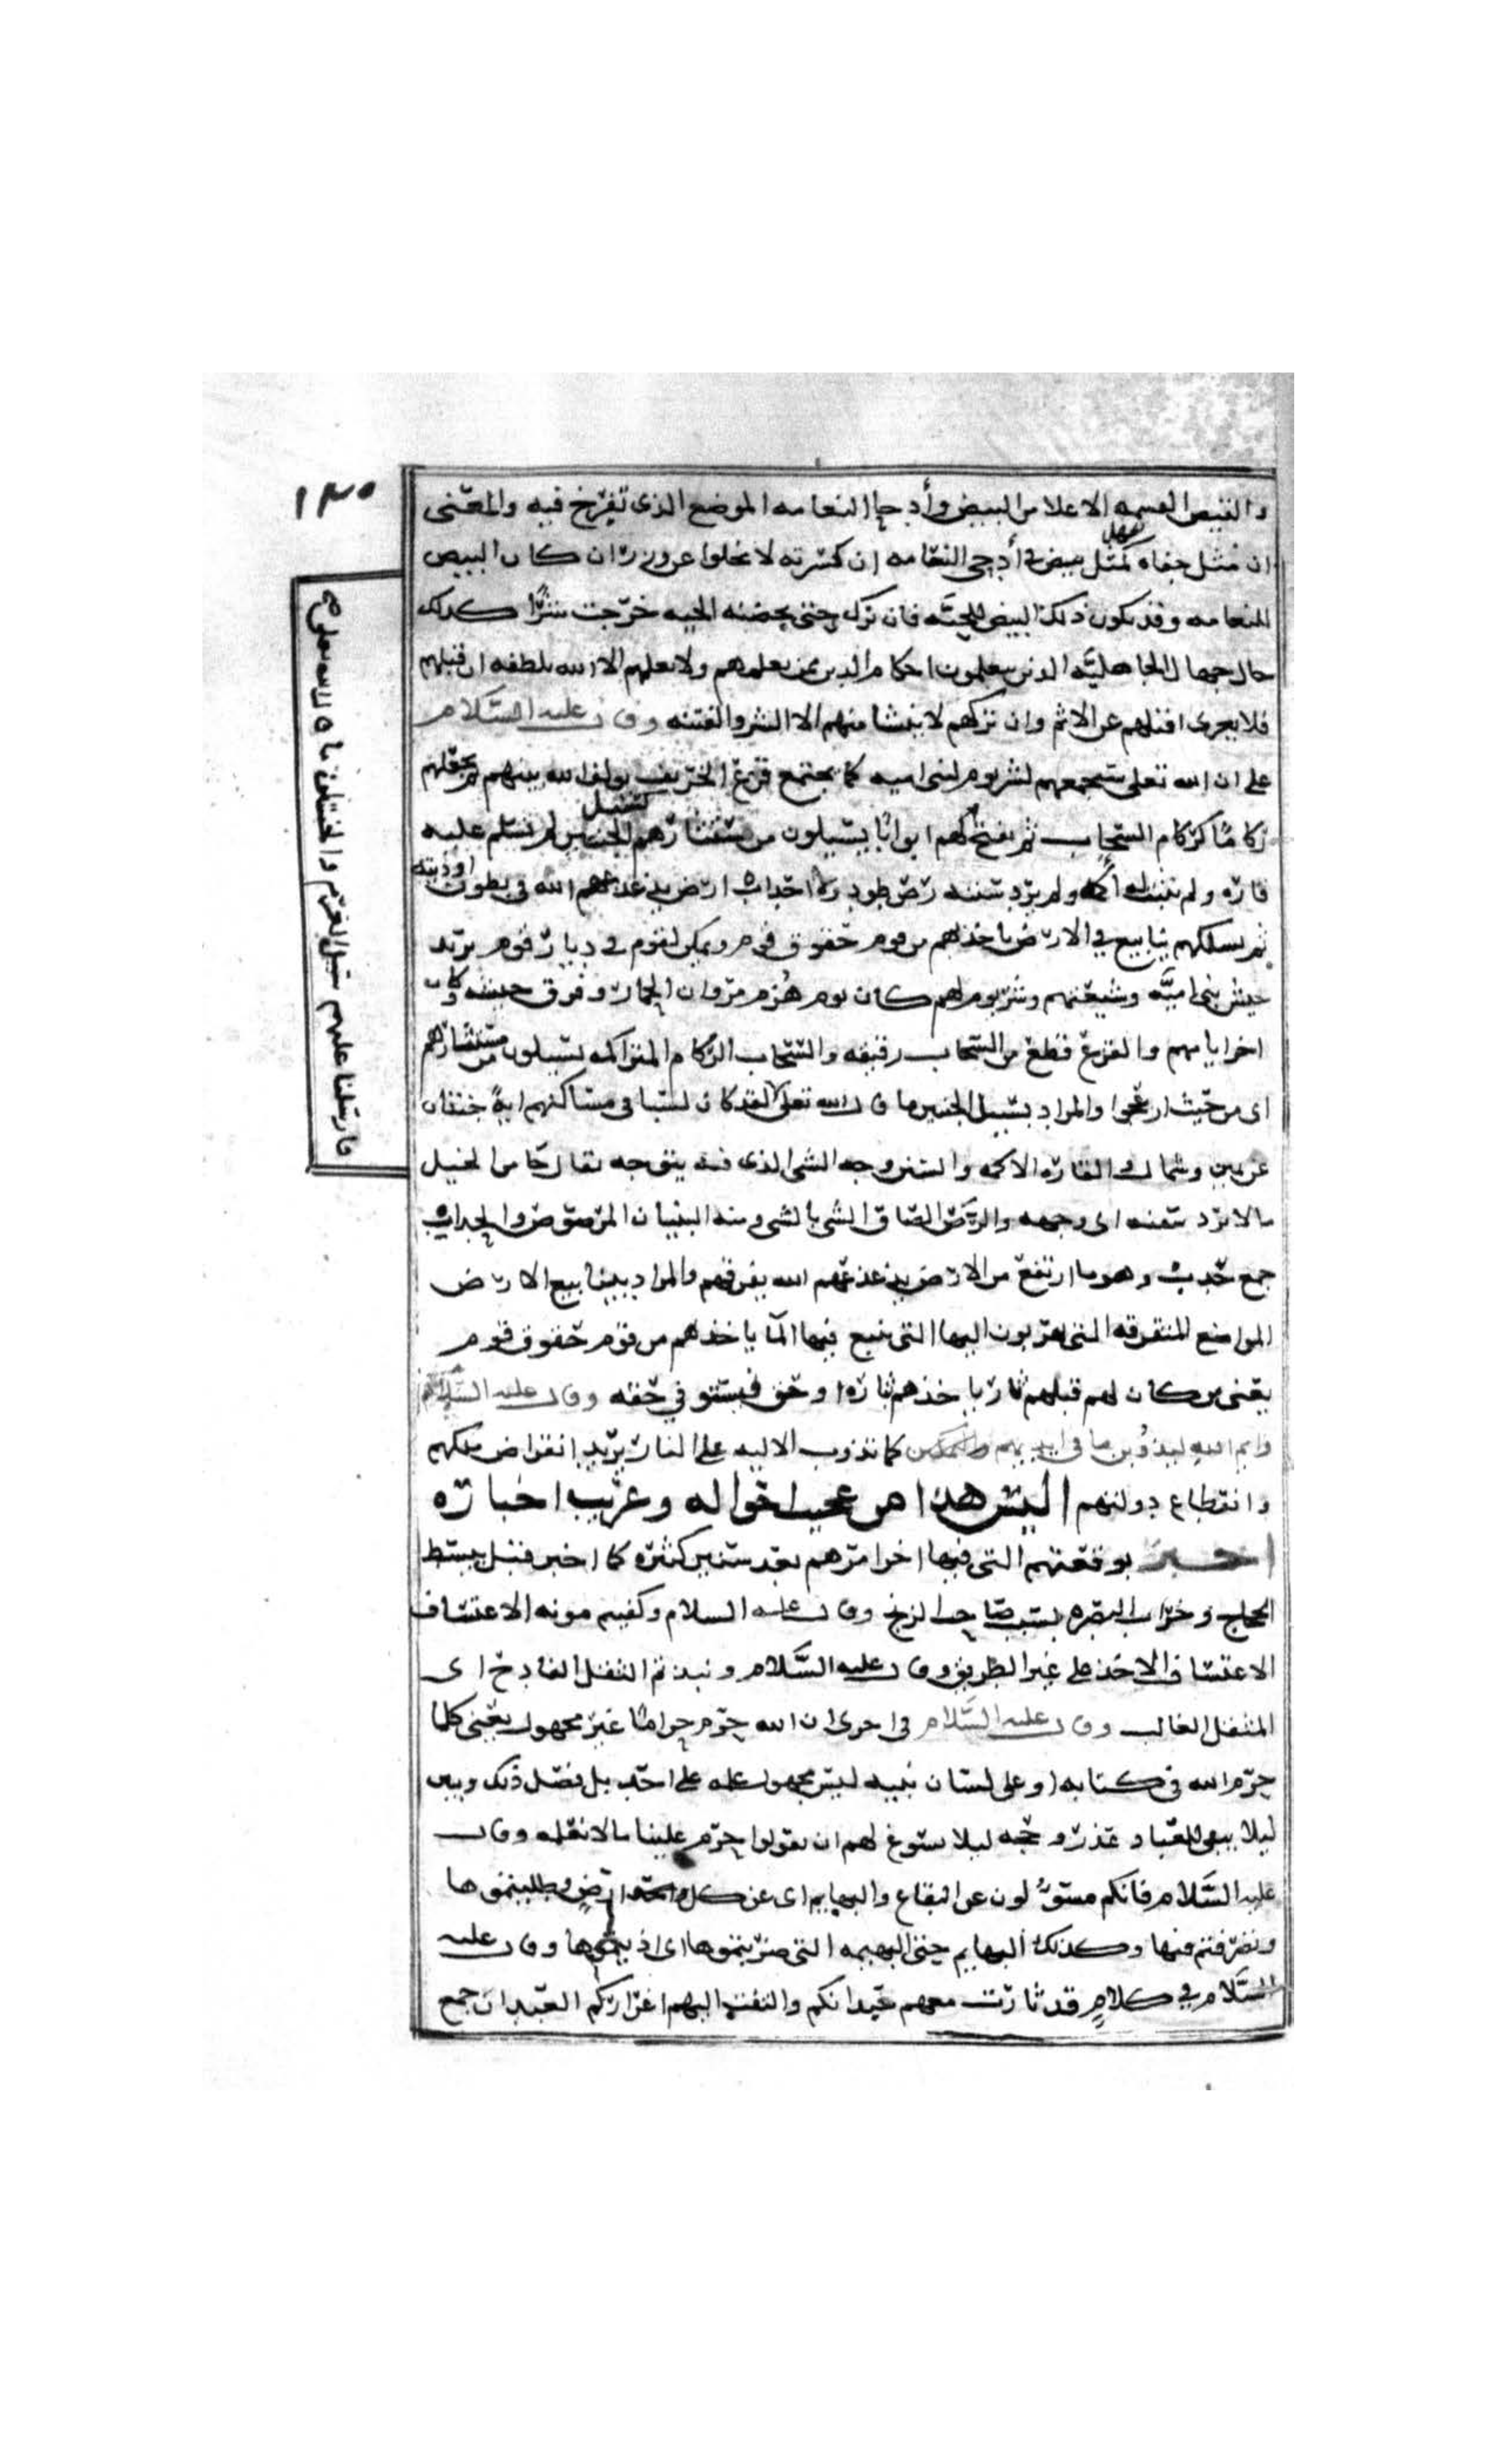 ١٣٥
والقيض القسمه الاعلا من البيض وأدحى النعامه الموضع الذى تفرّخ فيه والمعنى
ان مثل جفاه كمثل بيض فى أدحى النعامه ان كسرته لا تخلوا عن وزر ان كان البيض
للنعامه وقد يكون ذلك البيض للحيّه فان ترك حتى يحضنه الحيه خرّجت شرًّا كذلك
حال جهال الجاهليّه الذين يعلمون احكام الدين ممن يعلمهم ولا يعلمهم الا الله بلطفه ان قبلهم
فلا يعرى اقتلهم عن الاثم وان تركهم لا ينشا منهم الا الشر والفتنه وقال عليه السّلام
على ان الله تعلى سيجمعهم لشر يوم لبنى اميه كما يجتمع قزع الخريف يولف الله بينهم ثم يجعلهم
ركامًا كركام السّحاب ثم يفتح لهم ابوابًا يسيلون من مستثارهم كسيل الجنتين لم تسلم عليه
قاره ولم تثبت له اكمه ولم يرد سننه رصّ طود ولا احداب ارض يذعذعهم الله فى بطون اوديته
ثم يسلكهم ينابيع في الارض ياخذ بهم من قوم حقوق قوم ويمكن لقوم فى ديار قوم يريد
جيش بنى اميّه وشيعتهم وشر يوم لهم كان يوم هُزم مروان الحمار وفرق جيشه وكان
اخر ايامهم والقزع قطع من السّحاب رقيقه والسّحاب الرّكام المتراكمه يسيلون من مستثارهم
اى من حيث ارتحجوا والمراد بسيل الجنتين ما قال الله تعلى لقد كان لسبا فى مساكنهم ايةً جنتان
عن يمين وشمال والقاره الاكمه والسنن وجه الشى الذى فيه يتوجه يقال جا من الخيل
مالا يرد سننه اى وجهه والرّصّ الصاق الشى بالشى ومنه البنيان المرصوص والحداب
جمع حدب وهو ما ارتفع من الارض يذعذعهم الله يفرقهم والمراد بينابيع الارض
المواضع المتفرقه التى يهربون اليها التى ينبع فيها الما ياخذهم من قوم حقوق قوم
يعنى من كان لهم قبلهم ثار ياخذهم ثاره او حق فيستوفي حقه وقال عليه السّلام
وايم الله ليذوُبن ما فى ايديهم والتمكين كما تذوب الاليه على النار يريد انقراض ملكهم
وانقطاع دولتهم اليس هذا من عجيب احواله وغريب اخباره
اخبر بوقعتهم التى فيها اخر امرهم بعد سنين كثيره كما اخبر قبل بسط
الحجاج وخراب البصره بسبب صاحب الزنج وقال عليه السلام وكفيتم مونه الاعتساف
الاعتساف الاخذ على غير الطريق وقال عليه السَّلام ونبذتم الثقل الفادح اى
المثقل الغالب وقال عليه السَّلام فى اخرى ان الله حرّم حرامًا غير مجهول يعنى كلما
حرّم الله فى كتابه او على لسان نبيه ليس مجهول علمه على احد بل فصّل ذلك وبين
ليلا يبقى للعباد عذر وحجه ليلا يسوغ لهم ان يقولوا حرّم علينا مالا نعلمه وقال
عليه السَّلام فانكم مسوُّلون عن البقاع والبهايم اى عن كل واحد ارض وطلبتموها
وتصرفتم فيها وكذلك البهايم حتى البهيمه التى ضربتموها اى اذيتموها وقال عليه
السَّلام في كلامٍ قد ثارت معهم عبدانكم والتفت اليهم اعرابكم العبدان جمع
فارسلنا عليهم سيل العرم